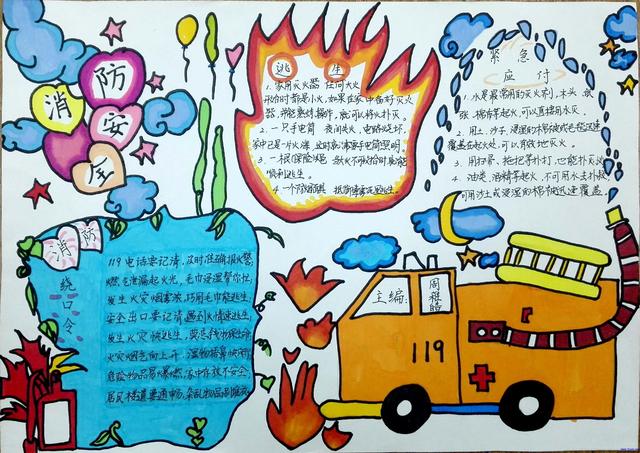 消防安全
逃生
1.家用灭火器 任何大火
开始时都是小火,如果家中备好灭火
器,并能熟练操作,就可以将火扑灭。
2.一只手电筒 夜间失火,电路烧坏,
家中已是一片火海,这时就需要手电筒照明。
3.一根保险绳
顺利逃生。
4.一个防烟面具
紧急
应付
1.水是最常用的灭火剂,木头、纸
张、棉布等起火,可以直接用水灭。
2.用土、沙子、浸湿的棉被或毛毯迅速
覆盖在起火处,可以有效地灭火。
3.用扫帚、拖把等扑打,也能扑灭火
4.油类、酒精等起火,不可用水去扑救,
可用沙土或浸湿的棉被迅速覆盖。
消防
绕口令
119电话要记清,及时准确报火警;
燃气泄漏起火光,毛巾浸湿帮你忙,
发生火灾烟雾浓,巧用毛巾能逃生,
安全出口要记清,遇到火情速逃生,
发生火灾快逃生,
火灾烟气向上升,湿物捂鼻快
危险物品易爆燃,家中存放不安全,
居民楼道要通畅,杂乱物品
主编:
周雅皓
119